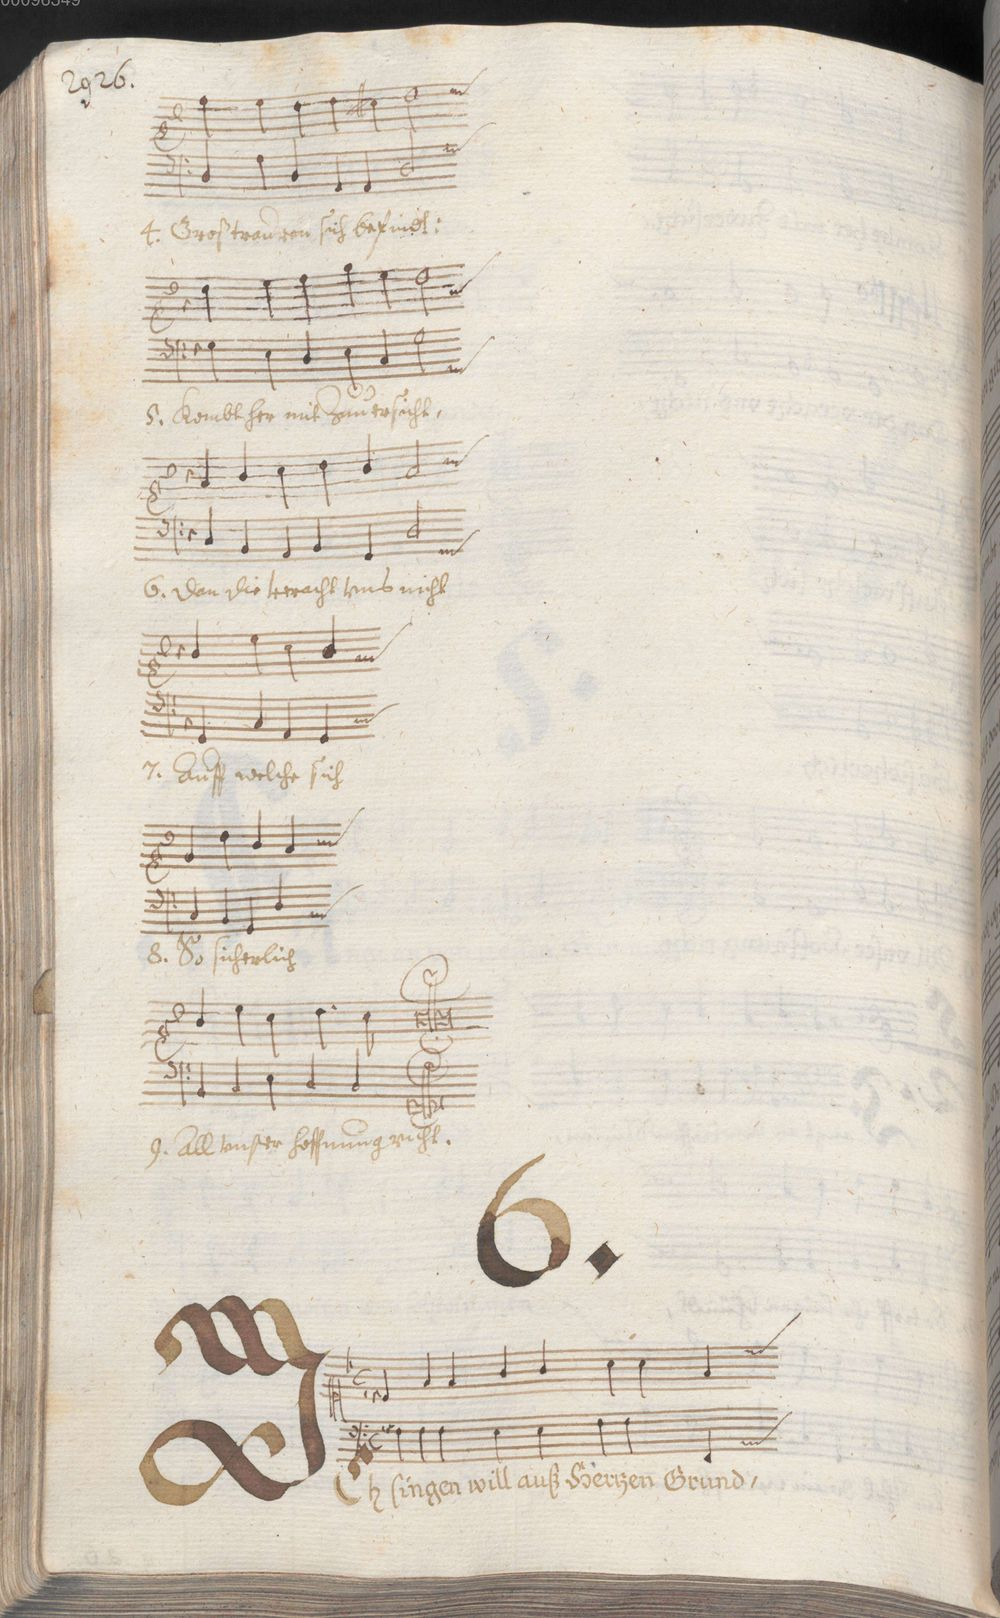 00098349
2926.
4. Groß trauren sich befindt:
5. Kombt her mit Zuuersicht,
6. Dan die veracht vns nicht
7. Auff welche sich
8. So sicherlich
9. All vnser hoffnung richt.
6.
Ich singen will auß Hertzen Grund,